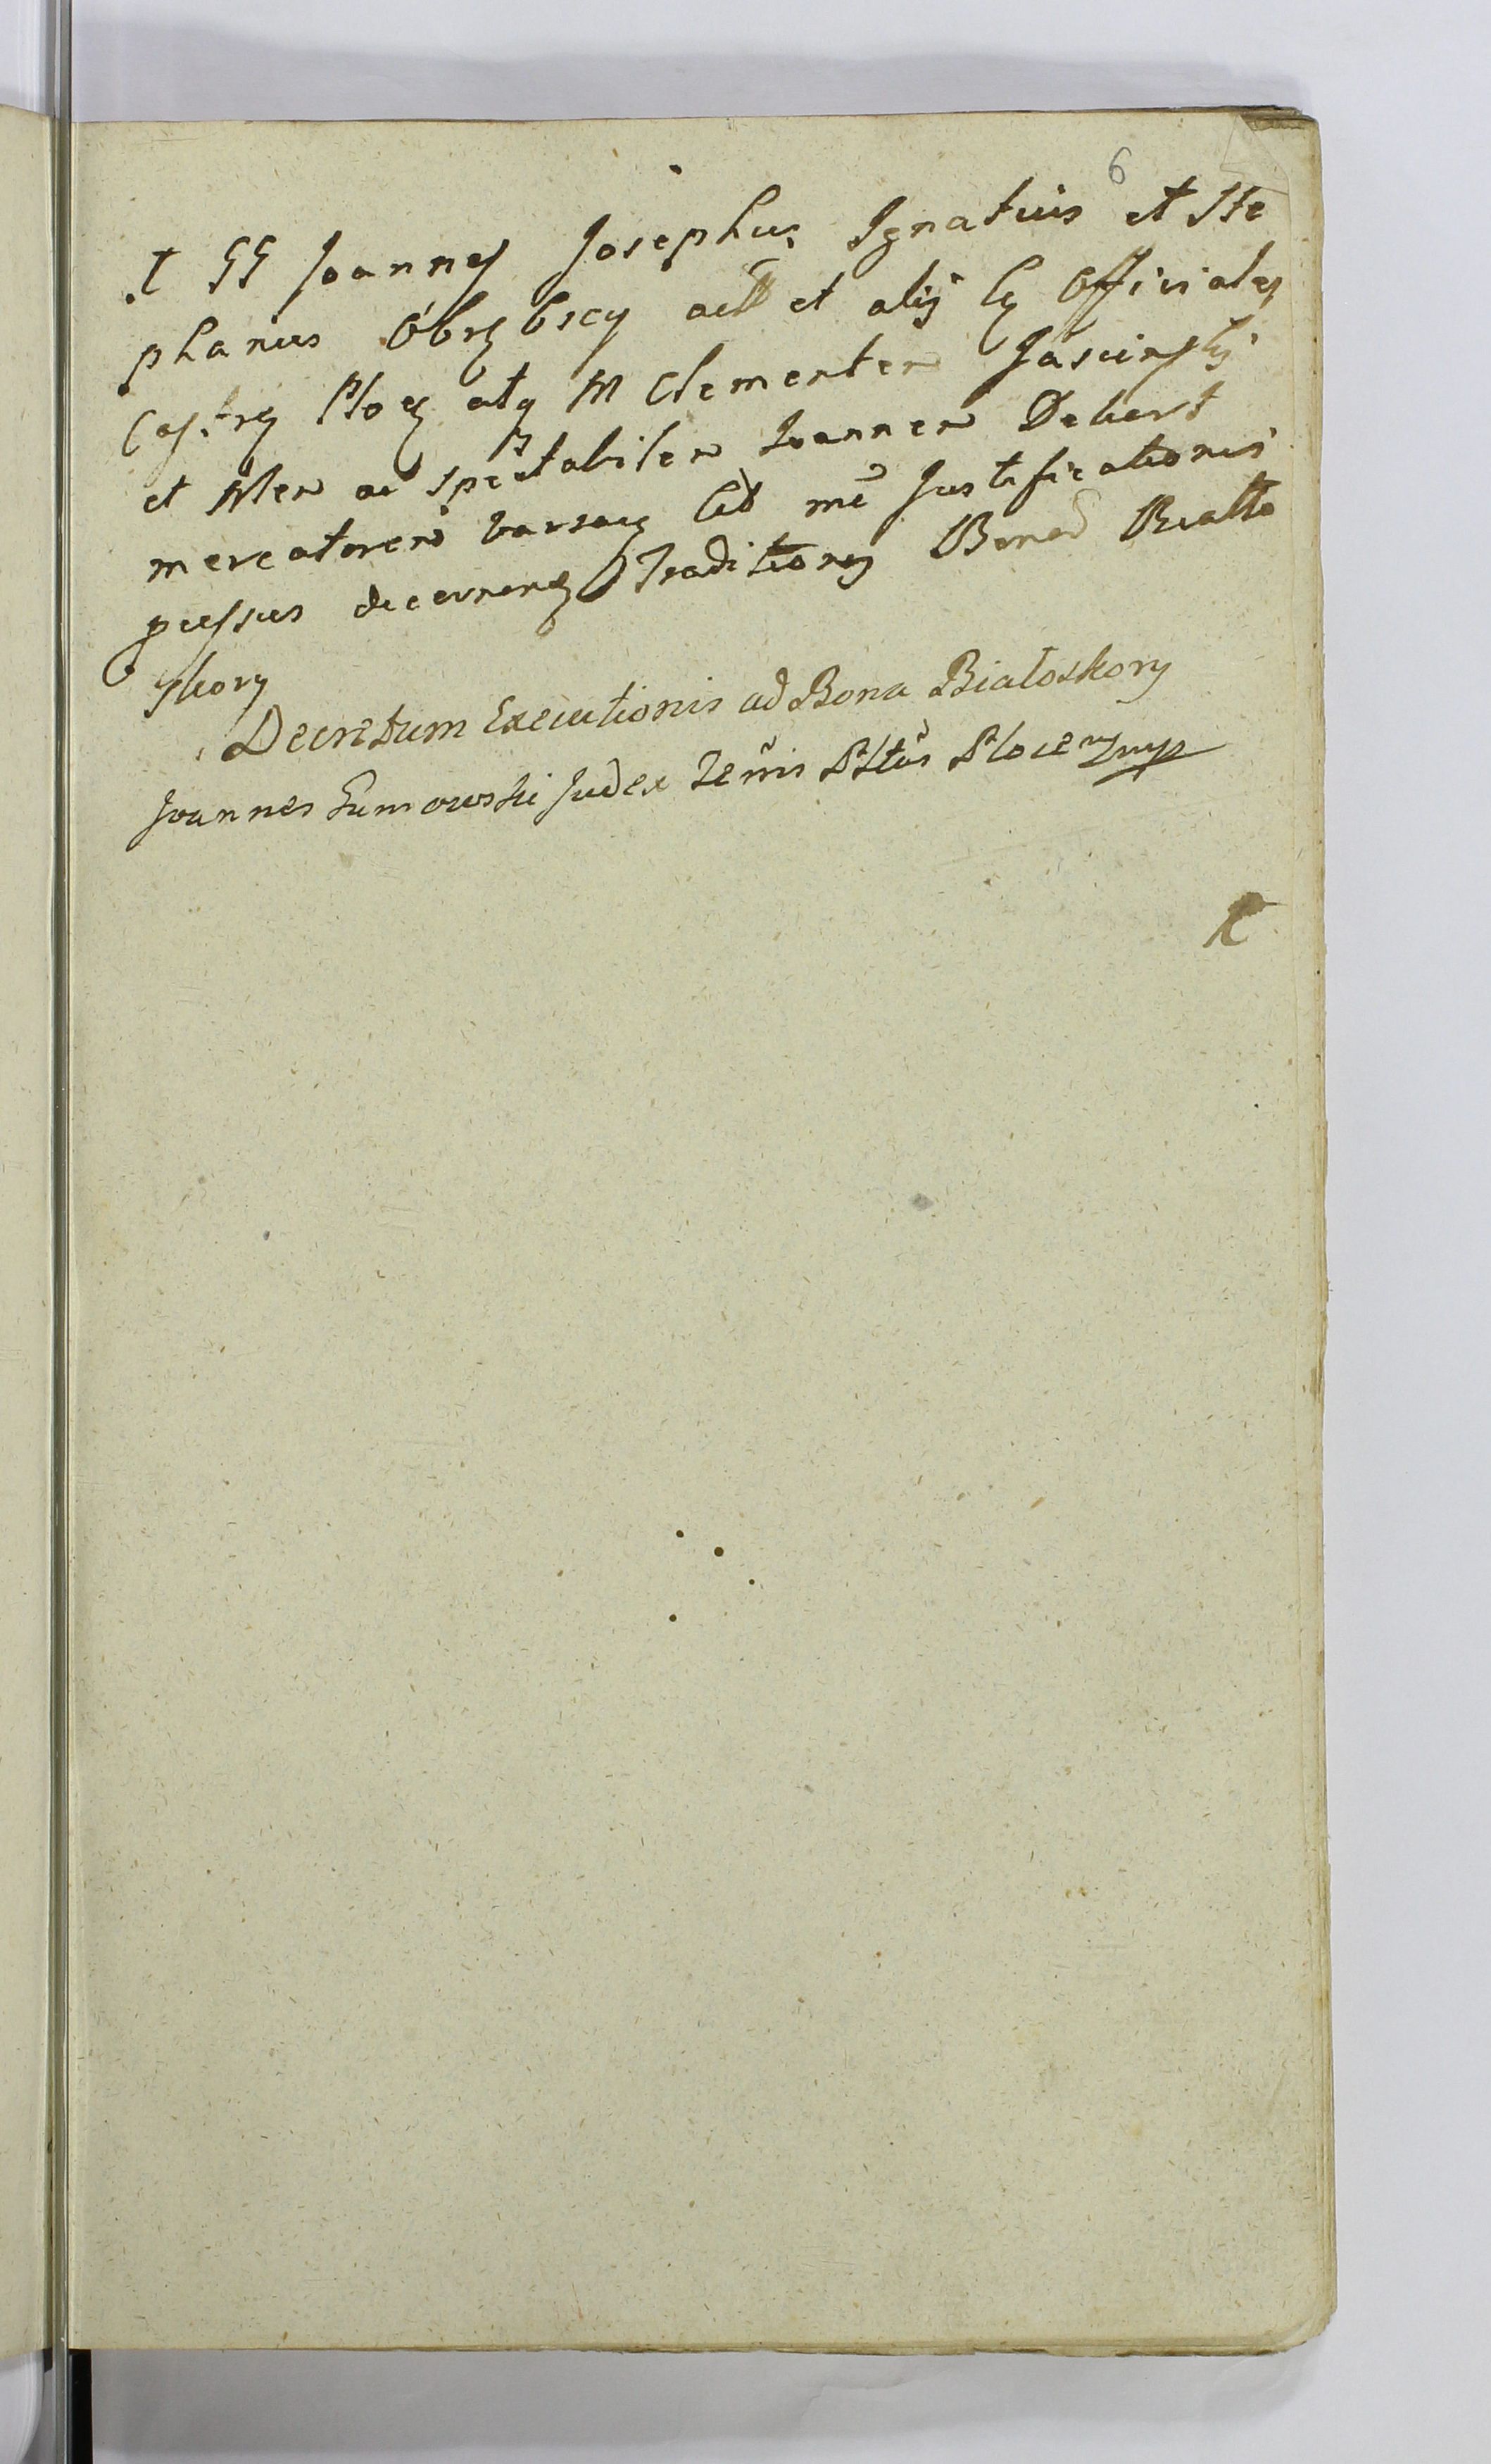 6
I GG Joannes Josephus Ignatius et Ste
phanus Obrębscy act et alij Officiales
Castren Plocen atq M Clementem Jasinski
et Nlem ac spectabilem Joannem Debert
mercatorem Varsav Cit me Justificationis
decernen Traditiones Bonor Biało
skory
Decretum Executionis ad Bona Białoskory
Joannes Rumowski Judex Terris Plocen mp